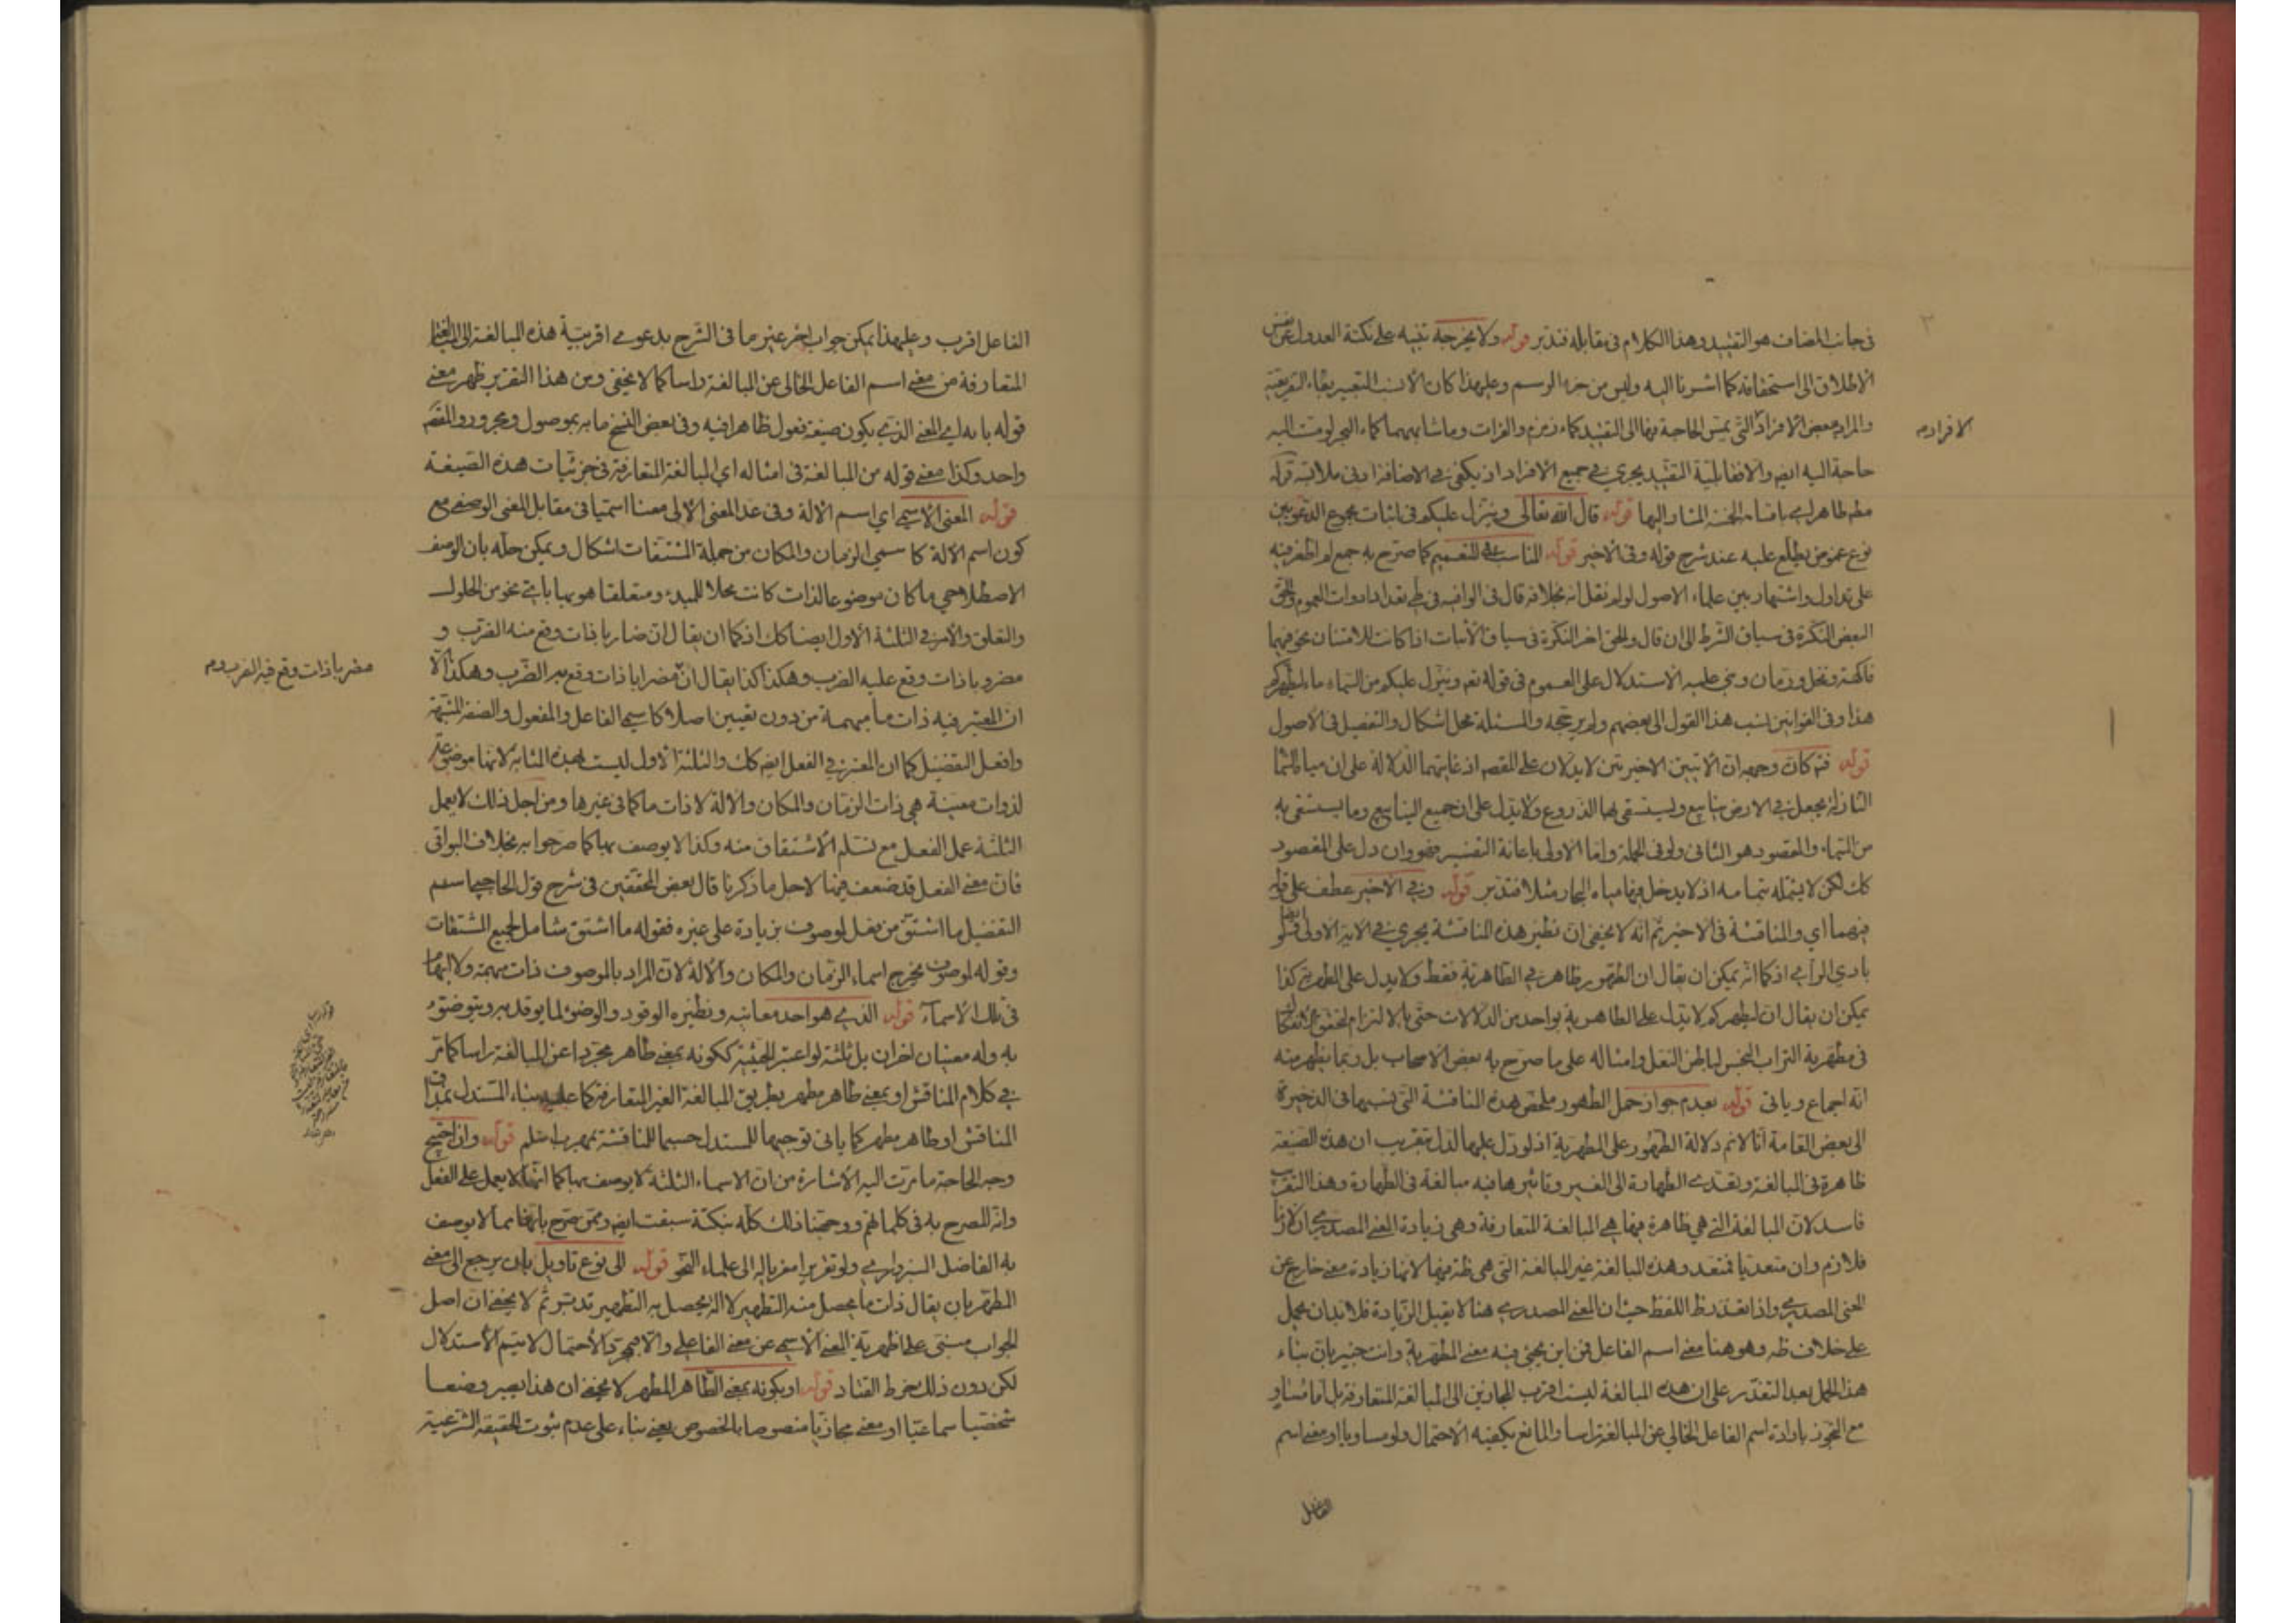 في جانب المضاف هو التقييد وهذا الكلام في مقابله فتدبر قوله ولا يخرجه تنبيه على نكتة العدول عن
الاطلاق الى استحقاقه كما اشرنا اليه وليس من جزء الرسم وعليهذا كان الانسب التعبير بفاء التفريعية
والمراد ببعض الافراد التي يمس الحاجة بها الى التقييد كماء زمزم والفرات وما شابههما كماء البحر لو مست اليه
حاجة اليه ايضا والا فقابلية التقييد يجري في جميع الافراد اذ يكفي في الاضافة ادنى ملابسة قوله
مطهر طاهر اي باقسامه الخمسة المشار اليها قوله قال الله تعالى وينزل عليكم في اثبات مجموع الدعويين
نوع غموض يطلع عليه عند شرح قوله وفي الاخير قوله المناسب للتعميم كما صرح به جمع لم اظفر فيه
على تداول واشتهار بين علماء الاصول لو لم نقل انه بخلافه قال في الوافيه في طي تعداد ادوات العموم والحق
البعض النكرة في سياق الشرط الى ان قال والحق اخر النكرة في سياق الاثبات اذا كانت للامتنان نحو فيهما
فاكهة ونخل ورمان وبني عليه الاستدلال على العموم في قوله تعم وينزل عليكم من السماء ماء ليطهركم
هذا وفي القوانين نسب هذا القول الى بعضهم ولم يرجحه والمسئلة محل اشكال والتفصيل في الاصول
قوله فتم كان وجهه ان الايتين الاخيرتين لا يدلان على المقصد اذ غايتهما الدلالة على ان مياه السماء
النازلة يجعل في الارض ينابيع ويستسقى بها الزروع ولا يدل على ان جميع الينابيع وما يستسقى به
من السماء والمقصود هو الثاني ولو في الجملة واما الاولى باعانة التفسير فهو وان دل على المقصود
كك لكن لا يشمله بتمامه اذ لا يدخل فيها مياه البحار مثلا فتدبر قوله وفي الاخير عطف على قوله
فيهما اي والمناقشة في الاخير ثم انه لا يخفى ان نظير هذه المناقشة يجري في الاية الاولى ايضا
بادي الرأي اذ كما انه يمكن ان يقال ان الطهور ظاهر في الطاهرية فقط ولا يدل على الطهرية كذا
يمكن ان يقال ان ليطهركم لا يدل على الطاهرية بواحد من الدلالات حتى بالالتزام
في مطهرية التراب النجس لباطن النعل وامثاله على ما صرح به بعض الاصحاب بل ربما يظهر منه
انه اجماع وياتي قوله بعدم جواز حمل الطهور ملخص هذه المناقشة التي نسبها في الذخيرة
الى بعض العامة انا لا نم دلالة الطهور على المطهرية اذ لو دل عليها لدل بتقريب ان هذه الصيغة
ظاهرة في المبالغة وبتعدي الطهارة الى الغير وتاثيرها فيه مبالغة في الطهارة وهذا التقريب
فاسد لان المبالغة التي هي ظاهرة فيها هي المبالغة المتعارفة وهي زيادة المعنى المصدري ان لازما
فلازم وان متعديا فمتعد وهذه المبالغة غير المبالغة التي هي ظة فيها لانها زيادة معنى خارج عن
المعنى المصدري واذا تعذر ظ اللفظ حيث ان المعنى المصدري هنا لا يقبل الزيادة فلا بد ان يحمل
على خلاف ظه وهو هنا معنى اسم الفاعل فمن اين يجئ فيه معنى المطهرية وانت خبير بان بناء
هذا الحمل بعد التعذر على ان هذه المبالغة ليست اقرب المجازين الى المبالغة المتعارفة بل اما مساو
مع التجوز بارادة اسم الفاعل الخالي عن المبالغة راسا والمانع يكفيه الاحتمال ولو مساويا او معنى اسم
الفاعل
الافراد م
الفاعل اقرب وعليهذا يمكن جواب اخر غير ما في الشرح بدعوى اقربية هذه المبالغة الى المبالغة
المتعارفة من معنى اسم الفاعل الخالي عن المبالغة راسا كما لا يخفى ومن هذا التقرير ظهر معنى
قوله با به اي المعنى الذي يكون صيغة فعول ظاهرا فيه وفي بعض النسخ ما به بموصول ومجرور والمقصد
واحد وكذا معنى قوله من المبالغة في امثاله اي المبالغة المتعارفة في جزئيات هذه الصيغة
قوله المعنى الاسمي اي اسم الالة وفي عد المعنى الالي معنا اسميا في مقابل المعنى الوصفي مع
كون اسم الالة كاسمي الزمان والمكان من جملة المشتقات اشكال ويمكن حله بان الوصف
الاصطلاحي ما كان موضوعا لذات كانت محلا للمبدء ومتعلقا هو بها باي نحو من الحلول
والتعلق والامر في الثلثة الاول ايضا كك اذ كما ان يقال ان ضاربا ذات وقع منه الضرب و
مضروبا ذات وقع عليه الضرب وهكذا كذا يقال ان مضرابا ذات وقع به الضرب وهكذا الا
ان المعتبر فيه ذات ما مبهمة من دون تعيين اصلا كاسمي الفاعل والمفعول والصفة المشبهة
وافعل التفضيل كما ان المعتبر في الفعل ايضا كك والثلثة الاول ليست بهذه المثابة لانها موضوعة
لذوات معينة هي ذات الزمان والمكان والالة لا ذات ما كما في غيرها ومن اجل ذلك لا يعمل
الثلثة عمل الفعل مع تسلم الاشتقاق منه وكذا لا يوصف بها كما صرحوا به بخلاف البواقي
فان معنى الفعل قد ضعف فيها لاجل ما ذكرنا قال بعض المحققين في شرح قول الحاجبي اسم
التفضيل ما اشتق من فعل لموصوف بزيادة على غيره فقوله ما اشتق شامل لجميع المشتقات
وقوله لموصوف يخرج اسماء الزمان والمكان والالة لان المراد بالموصوف ذات مبهمة ولا ابهام
في تلك الاسماء قوله الذي هو احد معانيه ونظيره الوقود والوضوء لما يوقد به ويتوضوء
به وله معنيان اخران بل ثلثة لو اعتبر الحيثية ككونه بمعنى طاهر مجردا عن المبالغة راسا كما مر
في كلام المناقش او بمعنى طاهر مطهر بطريق المبالغة الغير المتعارفة كما عليه بناء المستدل
المناقش او طاهر مطهر كما ياتي توجيها للمستدل حسما للمناقشة قوله وان احتيج
وجه الحاجة ما مرت اليه الاشارة من ان الاسماء الثلثة لا يوصف بها كما انها لا يعمل على الفعل
وانه المصرح به في كلماتهم ووجهنا ذلك كله بنكتة سبقت ايضا وممن صرح بانها مما لا يوصف
به الفاضل السبزواري الى علماء النحو قوله الى نوع تاويل بان يرجع الى معنى
المطهر بان يقال ذات ما يحصل منه التطهير لا الة يحصل به التطهير تدبر ثم لا يخفى ان اصل
الجواب مبتني على اظهرية المعنى الاسمي عن معنى الفاعلي والا فبمجرد الاحتمال لا يتم الاستدلال
لكن دون ذلك خرط القتاد قوله او بكونه بمعنى الطاهر المطهر لا يخفى ان هذا يصير وضعا
شخصيا سماعيا او معنى مجازيا منصوصا بالخصوص يعني بناء على عدم ثبوت الحقيقة الشرعية
مضربا ذات وقع فيه الضرب و م